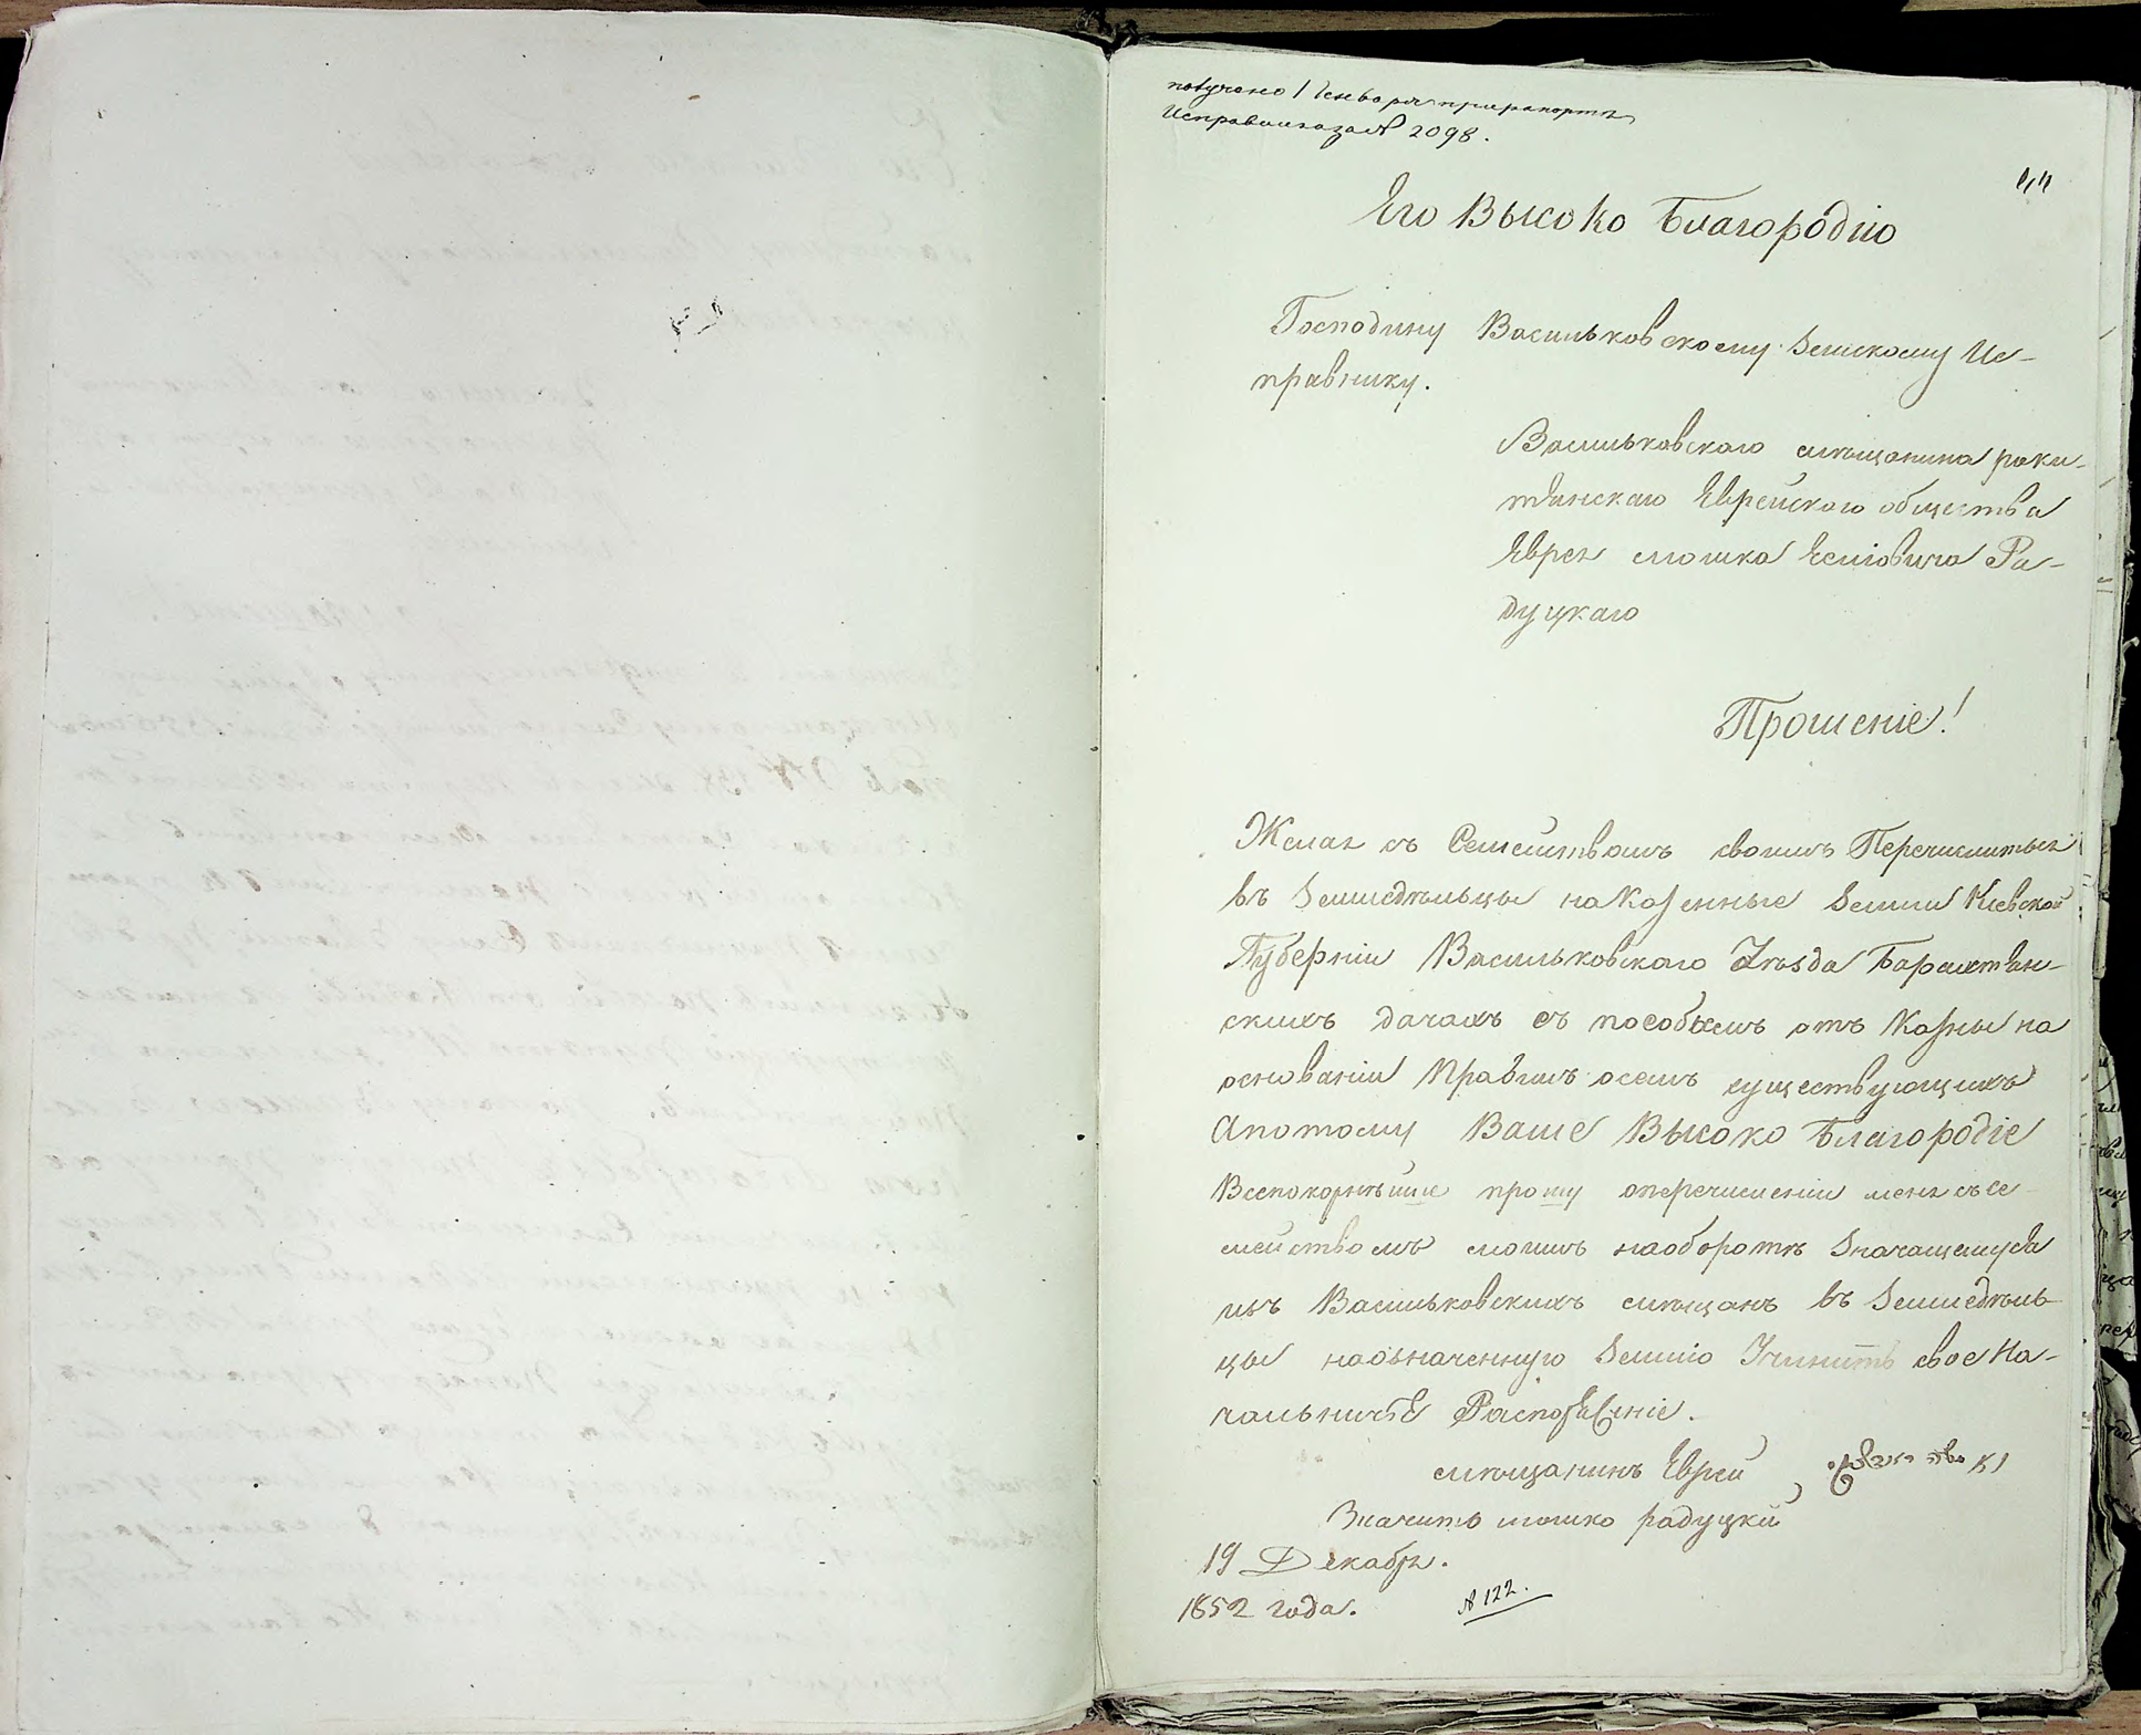 получено 1 Генваря при рапорте
Исправника за № 2098.
Его Высоко Благородію
Господину Васильковскому Земскому Ис-
правнику.
Васильковскаго мѣщанина раки-
тянскаго Еврейскаго общества
Еврея мошка Есиовича Ра-
дуцкаго
Прошеніе!
Желая съ Семействомъ своимъ Перечислиться
въ Земледѣльцы на Казенные Земли Кіевской
Губерніи Васильковскаго Уѣзда Барахтян-
скихъ дачахъ съ пособіемъ отъ Казны на
основаніи Правилъ осемъ существующихъ
Апотому Ваше Высоко Благородіе
Всепокорнѣише прошу оперечисленіи меня съ се-
мействомъ моимъ наоборотѣ Значащемуся
изъ Васильковскихъ мѣщанъ въ Земледѣль-
цы наозначенную Землю Учинить свое На-
чальниче Распоряженіе.
мѣщанинъ Еврей
Значитъ мошко радуцкий
19 Декабря.
1852 года.
№ 122.